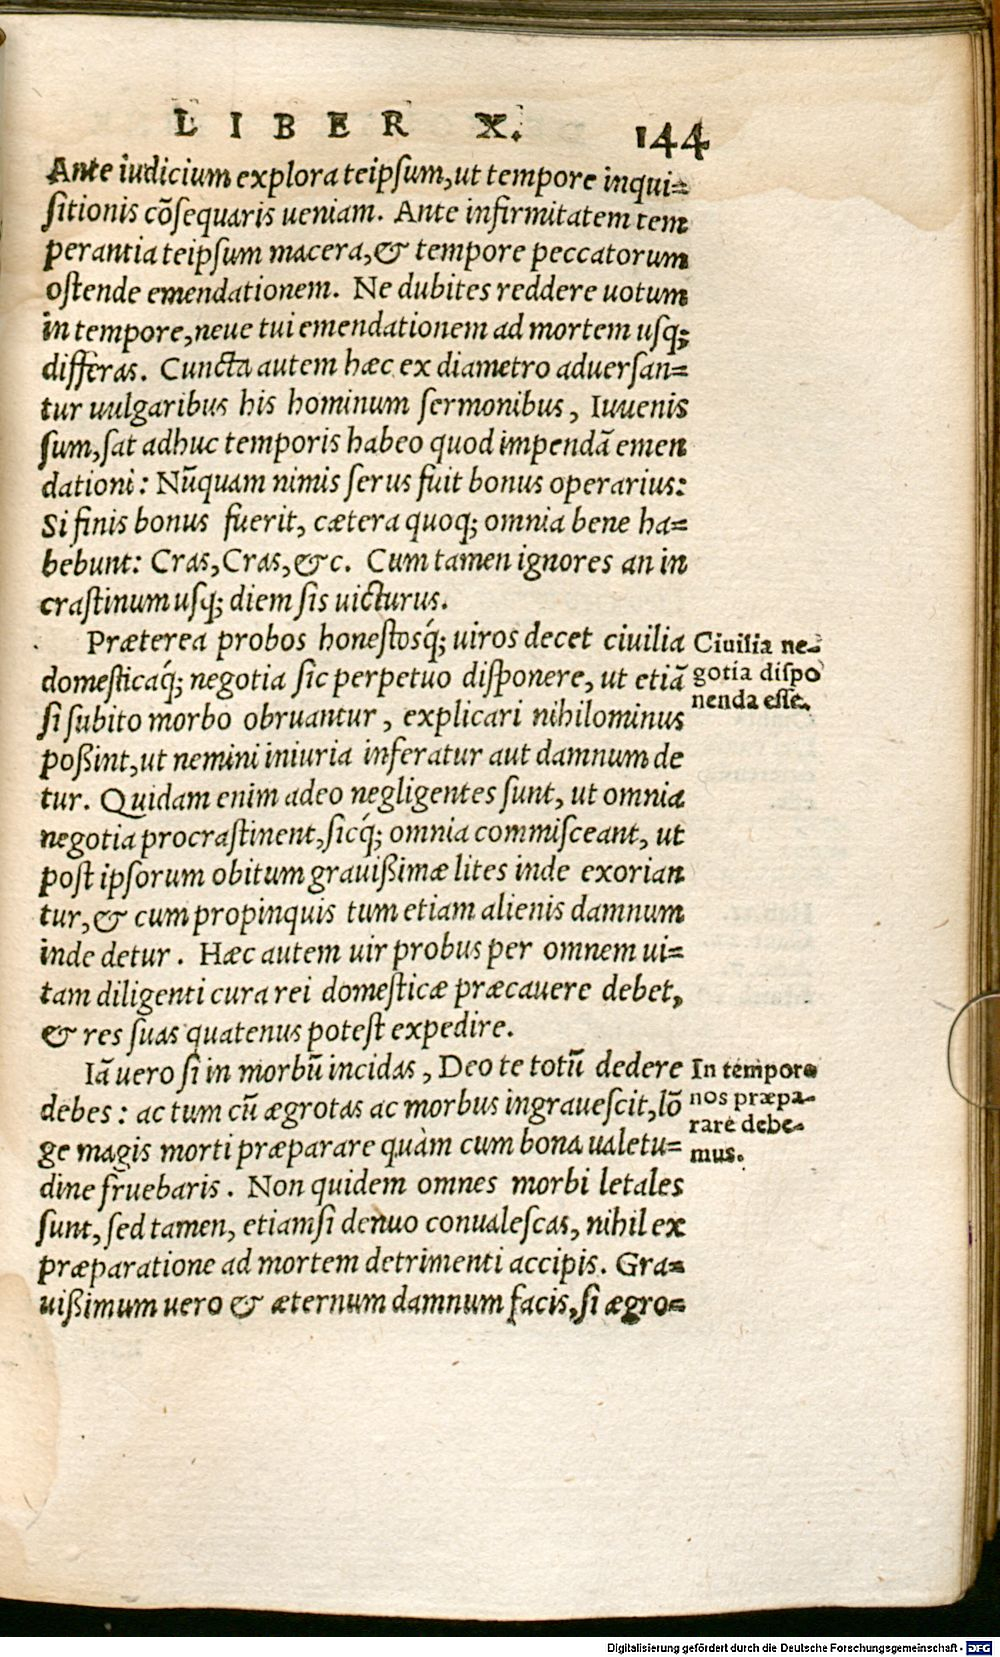 LIBER X. 144
Ante iudicium explora teipsum, ut tempore inqui=
sitionis cõsequaris ueniam. Ante infirmitatem tem
perantia teipsum macera, & tempore peccatorum
ostende emendationem. Ne dubites reddere uotum
in tempore, neue tui emendationem ad mortem usq;
differas. Cuncta autem hæc ex diametro aduersan=
tur uulgaribus his hominum sermonibus, Iuuenis
sum, sat adhuc temporis habeo quod impendã emen
dationi: Nũquam nimis serus fuit bonus operarius:
Si finis bonus fuerit, cætera quoq; omnia bene ha=
bebunt: Cras, Cras, &c. Cum tamen ignores an in
crastinum usq; diem sis uicturus.
Præterea probos honestosq́; uiros decet ciuilia
domesticaq́; negotia sic perpetuo disponere, ut etiã
si subito morbo obruantur, explicari nihilominus
poßint, ut nemini iniuria inferatur aut damnum de
tur. Quidam enim adeo negligentes sunt, ut omnia
negotia procrastinent, sicq́; omnia commisceant, ut
post ipsorum obitum grauißimæ lites inde exorian
tur, & cum propinquis tum etiam alienis damnum
inde detur. Hæc autem uir probus per omnem ui=
tam diligenti cura rei domesticæ præcauere debet,
& res suas quatenus potest expedire.
Iã uero si in morbũ incidas, Deo te totũ dedere
debes: ac tum cũ ægrotas ac morbus ingrauescit, lõ
ge magis morti præparare quàm cum bona ualetu=
dine fruebaris. Non quidem omnes morbi letales
sunt, sed tamen, etiamsi denuo conualescas, nihil ex
præparatione ad mortem detrimenti accipis. Gra=
uißimum uero & æternum damnum facis, si ægro=
Ciuilia ne=
gotia dispo
nenda esse.
In tempore
nos præpa-
rare debe-
mus.
Digitalisierung gefördert durch die Deutsche Forschungsgemeinschaft - DFG